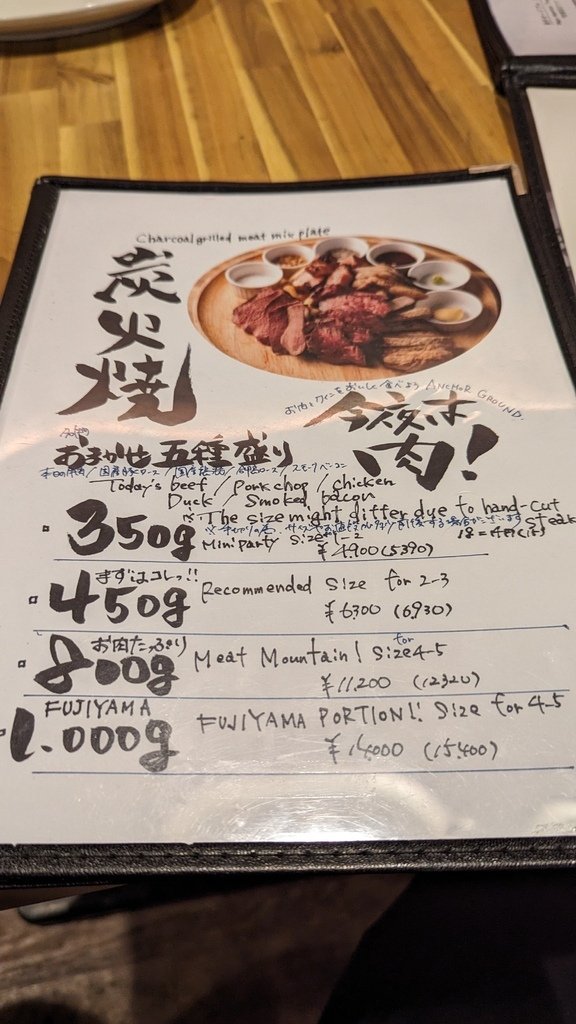 Charcoal grilled meat mix plate
炭火焼
お肉とワインをおいしく食べよう ANCHOR GROUND.
今夜は
肉!
おまかせ五種盛り
本日の牛肉/国産豚ロース/国産 /鴨ロース/スモークベーコン
Today's beef / Pork chop / Chicken
Duck / Smoked bacon
※The size might differ due to hand-cut
steak
350g
Mini party size 1-2
¥4900(5390)
まずはコレっ!!
450g
Recommended size for 2-3
¥6300 (6930)
お肉たっぷり
800g
Meat Mountain! size for 4-5
¥11,200 (12320)
FUJIYAMA
1.000g
FUJIYAMA PORTION!! Size for 4-5
¥14000 (15,400)